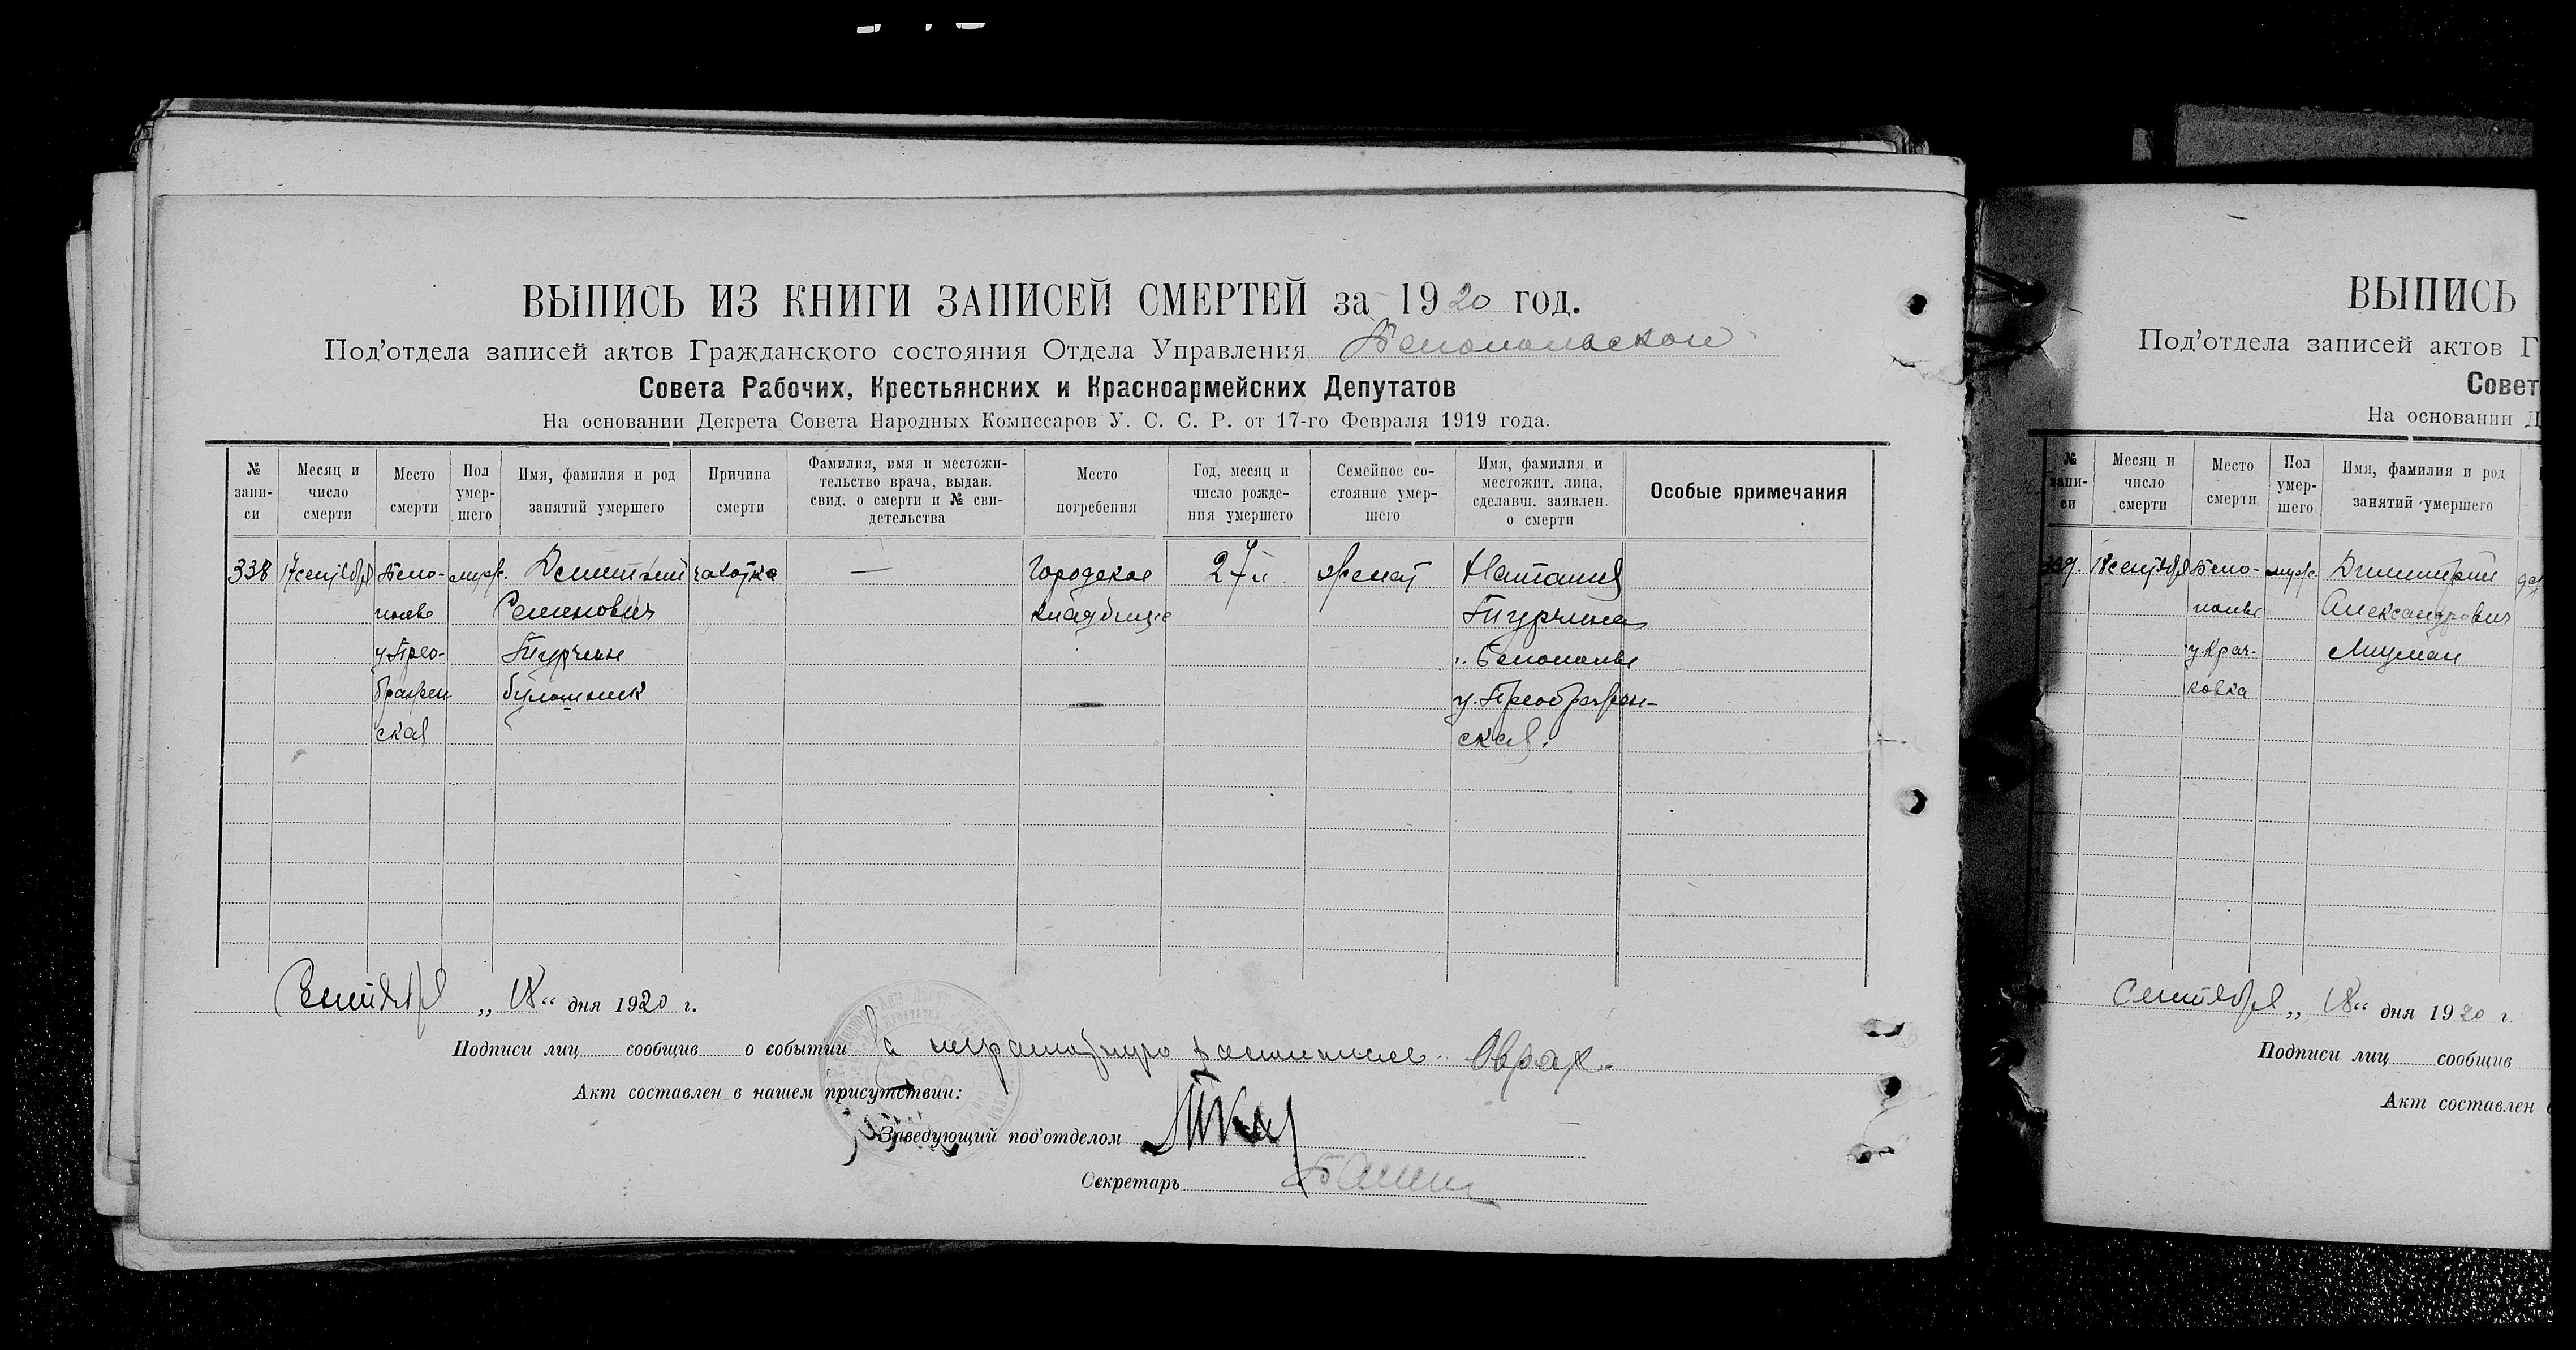 ВЫПИСЬ ИЗ КНИГИ ЗАПИСЕЙ СМЕРТЕЙ за 1920 год.
Под'отдела записей актов Гражданского состояния Отдела Управления Белопольской
Совета Рабочих, Крестьянских и Красноармейских Депутатов
На основании Декрета Совета Народных Комиссаров У. С. С. Р. от 17-го Февраля 1919 года.
№ запи-
си
Месяц и
число
смерти
Место
смерти
Пол
умер-
шего
Имя, фамилия и род
занятий умершего
Причина
смерти
Фамилия, имя и местожи-
тельство врача, выдав.
свид. о смерти и № сви-
детельства
Место
погребения
Год, месяц и
число рожде-
ния умершего
Семейное со-
стояние умер-
шего
Имя, фамилия и
местожит. лица,
сделавш. заявлен.
о смерти
Особые примечания
338
17 сентября
Бело-
полье
у. Прео-
бражен
ская
муж.
Дементий
Семенович
Турчин
булошник
чахотка
—
Городское
кладбище
27 л.
женат
Наталия
Турчина
Белополье
у. Преображен-
ская.
Сентября „18“ дня 1920 г.
Подписи лиц сообщив о событии За неграмотную
Акт составлен в нашем присутствии:
Заведующий под'отделом
Секретарь
ВЫПИСЬ
Под'отдела записей актов Г
Совет
На основании Д
№
запи-
си
Месяц и
число
смерти
Место
смерти
Пол
умер-
шего
Имя, фамилия и род
занятий умершего
339.
18 сентября
Бело-
полье
у. Крач-
ковка
муж.
Димитрий
Александрович
Сентября „18“ дня 1920 г.
Подписи лиц сообщив
Акт составлен в